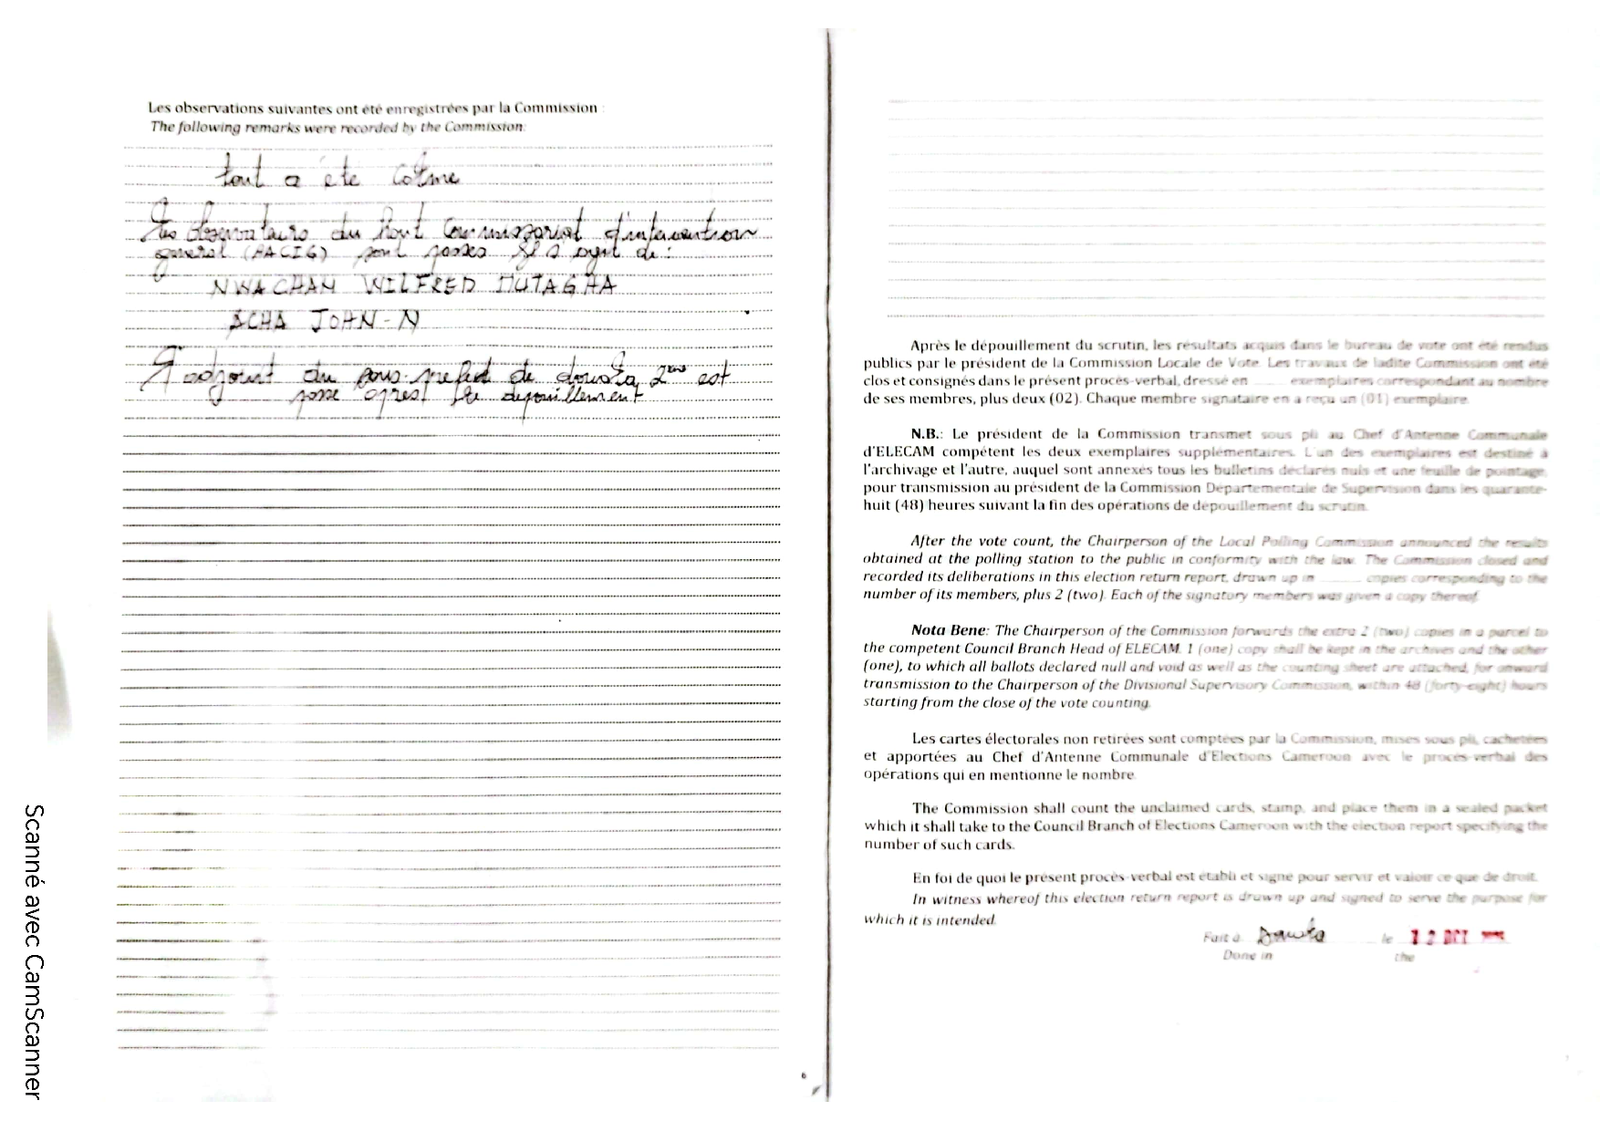 Les observations suivantes ont été enregistrées par la Commission :
The following remarks were recorded by the Commission:
tout a été calme
Les observateurs du haut Commissariat d'intervention
general (HACIG) sont passés Il s'agit de :
NWACHAN WILFRED MUTAGHA
ACHA JOHN-N
L'adjoint du sous-prefet de douala 2eme est
passe apres le depouillement
Après le dépouillement du scrutin, les résultats acquis dans le bureau de vote ont été rendus
publics par le président de la Commission Locale de Vote. Les travaux de ladite Commission ont été
clos et consignés dans le présent procès-verbal, dressé en ........ exemplaires correspondant au nombre
de ses membres, plus deux (02). Chaque membre signataire en a reçu un (01) exemplaire.
N.B.: Le président de la Commission transmet sous pli au Chef d'Antenne Communale
d'ELECAM compétent les deux exemplaires supplémentaires. L'un des exemplaires est destiné à
l'archivage et l'autre, auquel sont annexés tous les bulletins déclarés nuls et une feuille de pointage,
pour transmission au président de la Commission Départementale de Supervision dans les quarante-
huit (48) heures suivant la fin des opérations de dépouillement du scrutin.
After the vote count, the Chairperson of the Local Polling Commission announced the results
obtained at the polling station to the public in conformity with the law. The Commission closed and
recorded its deliberations in this election return report, drawn up in ........ copies corresponding to the
number of its members, plus 2 (two). Each of the signatory members was given a copy thereof.
Nota Bene: The Chairperson of the Commission forwards the extra 2 (two) copies in a parcel to
the competent Council Branch Head of ELECAM. 1 (one) copy shall be kept in the archives and the other
(one), to which all ballots declared null and void as well as the counting sheet are attached, for onward
transmission to the Chairperson of the Divisional Supervisory Commission, within 48 (forty-eight) hours
starting from the close of the vote counting.
Les cartes électorales non retirées sont comptées par la Commission, mises sous pli, cachetées
et apportées au Chef d'Antenne Communale d'Elections Cameroon avec le procès-verbal des
opérations qui en mentionne le nombre.
The Commission shall count the unclaimed cards, stamp, and place them in a sealed packet
which it shall take to the Council Branch of Elections Cameroon with the election report specifying the
number of such cards.
En foi de quoi le présent procès-verbal est établi et signé pour servir et valoir ce que de droit.
In witness whereof this election return report is drawn up and signed to serve the purpose for
which it is intended.
Fait à Douala le 12 OCT
Done in the
Scanné avec CamScanner